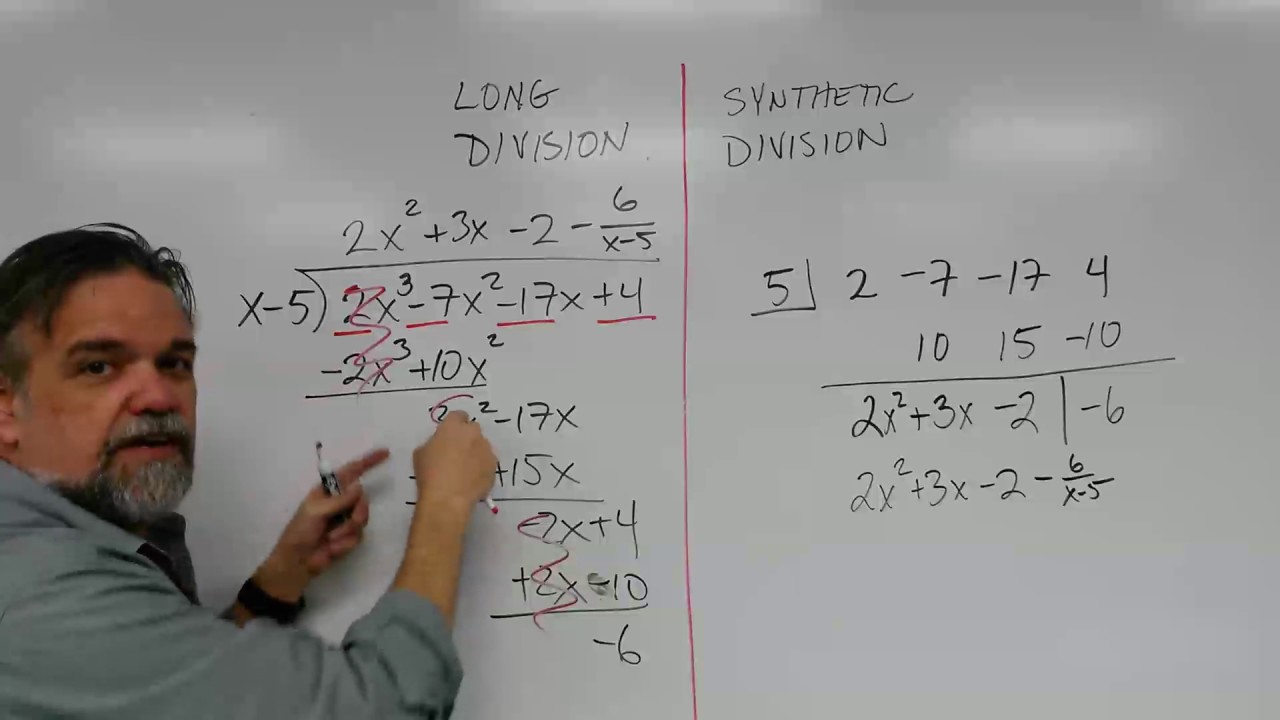 LONG
DIVISION
2x² + 3x - 2 - 6/(x-5)
x-5 ) 2x³ - 7x² - 17x + 4
-2x³ + 10x²
x² - 17x
+15x
-2x + 4
+2x - 10
-6
SYNTHETIC
DIVISION
5 | 2 -7 -17 4
10 15 -10
2x² + 3x - 2 | -6
2x² + 3x - 2 - 6/(x-5)